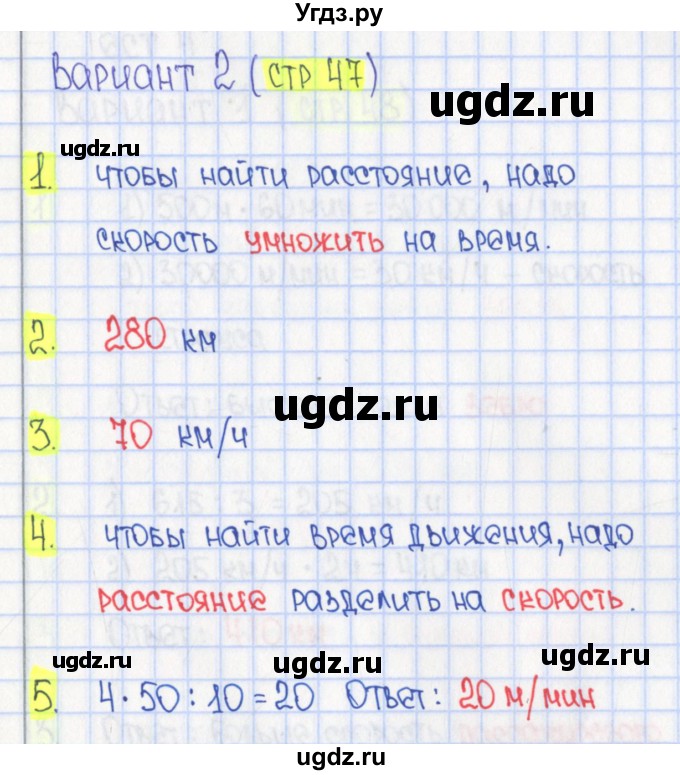 Угдз.ру
Вариант 2 (стр 47)
ugdz.ru
ugdz.ru
1. чтобы найти расстояние, надо
скорость умножить на время.
ugdz.ru
2. 280 км
ugdz.ru
3. 70 км/ч
ugdz.ru
4. чтобы найти время движения, надо
расстояние разделить на скорость.
ugdz.ru
ugdz.ru
5. 4·50:10=20 Ответ: 20 м/мин
ugdz.ru